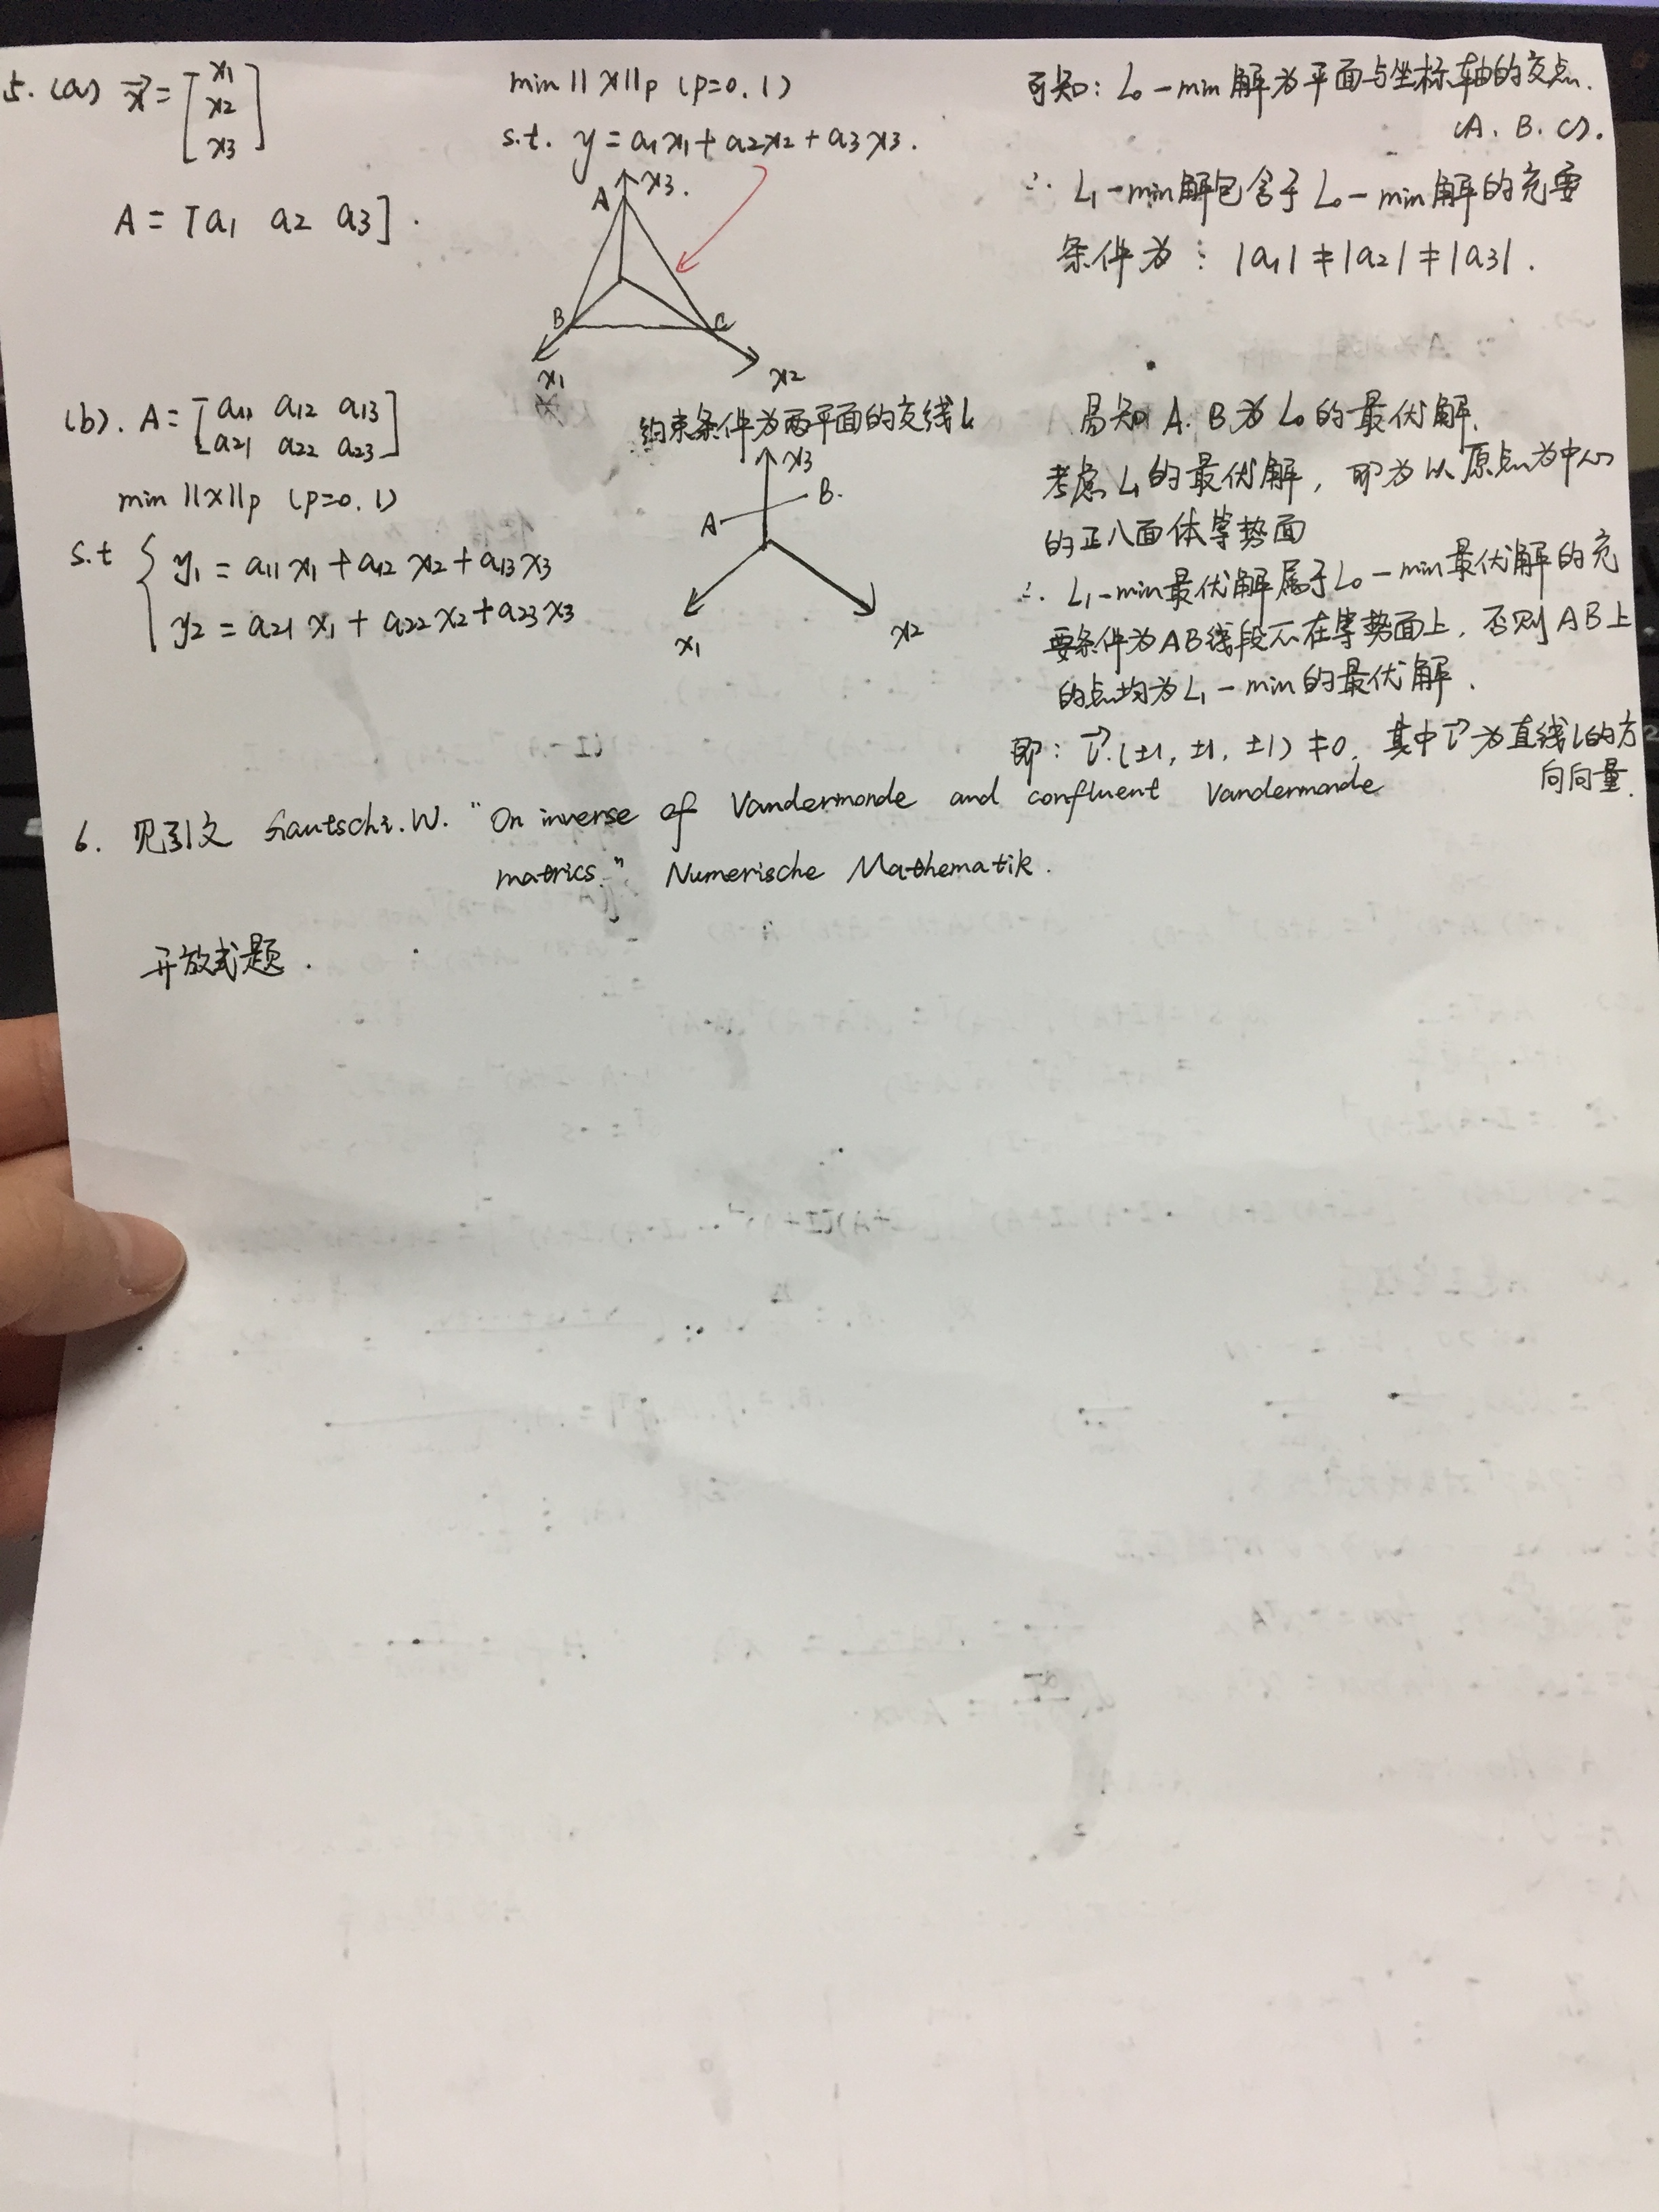 5. (a) x⃗ = [x1 x2 x3]
A = [a1 a2 a3].
min ||x||p (p=0,1)
s.t. y = a1x1 + a2x2 + a3x3.
A x3.
B C
x1 x2
可知: L0-min解为平面与坐标轴的交点.
(A. B. C).
∴ L1-min解包含于L0-min解的充要
条件为: |a1| ≠ |a2| ≠ |a3|.
(b). A = [a11 a12 a13
a21 a22 a23]
min ||x||p (p=0,1)
s.t { y1 = a11x1 + a12x2 + a13x3
y2 = a21x1 + a22x2 + a23x3
约束条件为两平面的交线l
x3
A B.
x1 x2
易知 A. B为L0的最优解.
考虑L1的最优解, 即为以原点为中心
的正八面体等势面
∴ L1-min最优解属于L0-min最优解的充
要条件为AB线段不在等势面上, 否则AB上
的点均为L1-min的最优解.
即: v⃗.(±1, ±1, ±1) ≠ 0, 其中v⃗为直线l的方
向向量.
6. 见引文 Gautschi.W. "On inverse of Vandermonde and confluent Vandermonde
matrics." Numerische Mathematik.
开放式题.